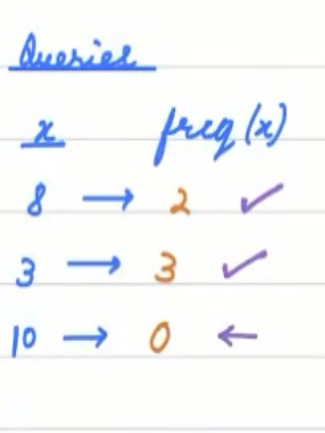 Queries
x freq(x)
8 → 2 ✓
3 → 3 ✓
10 → 0 ←